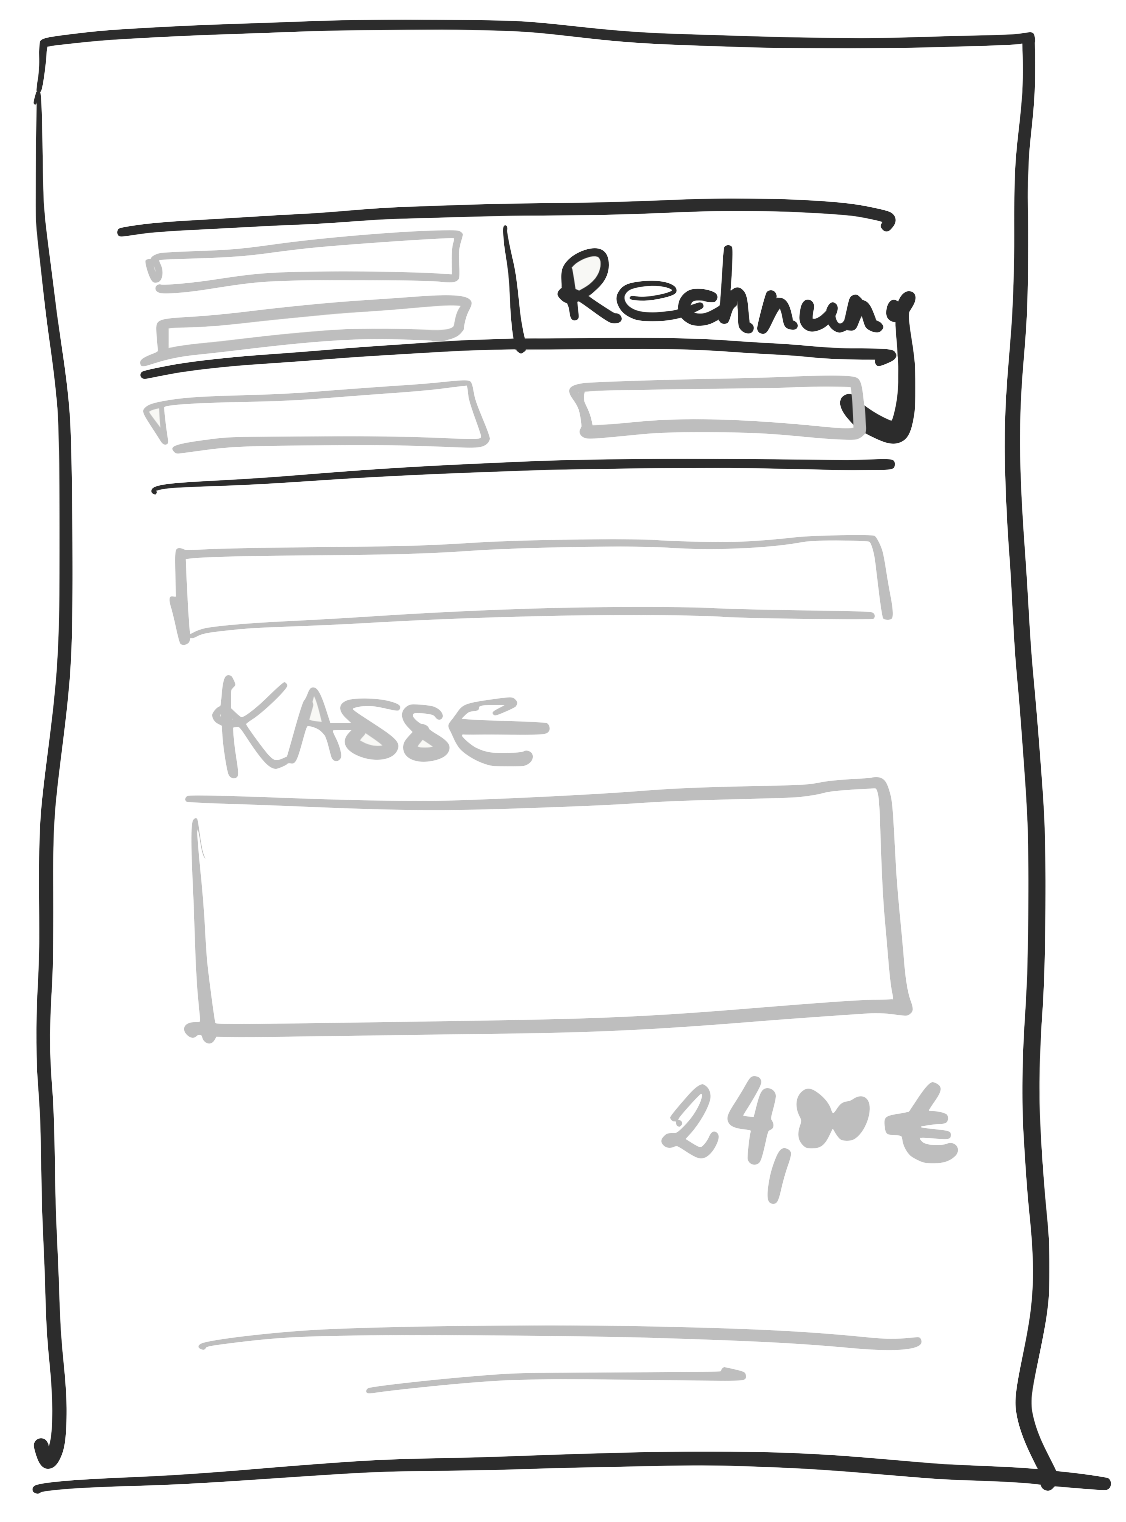 Rechnung
KASSE
24,00 €